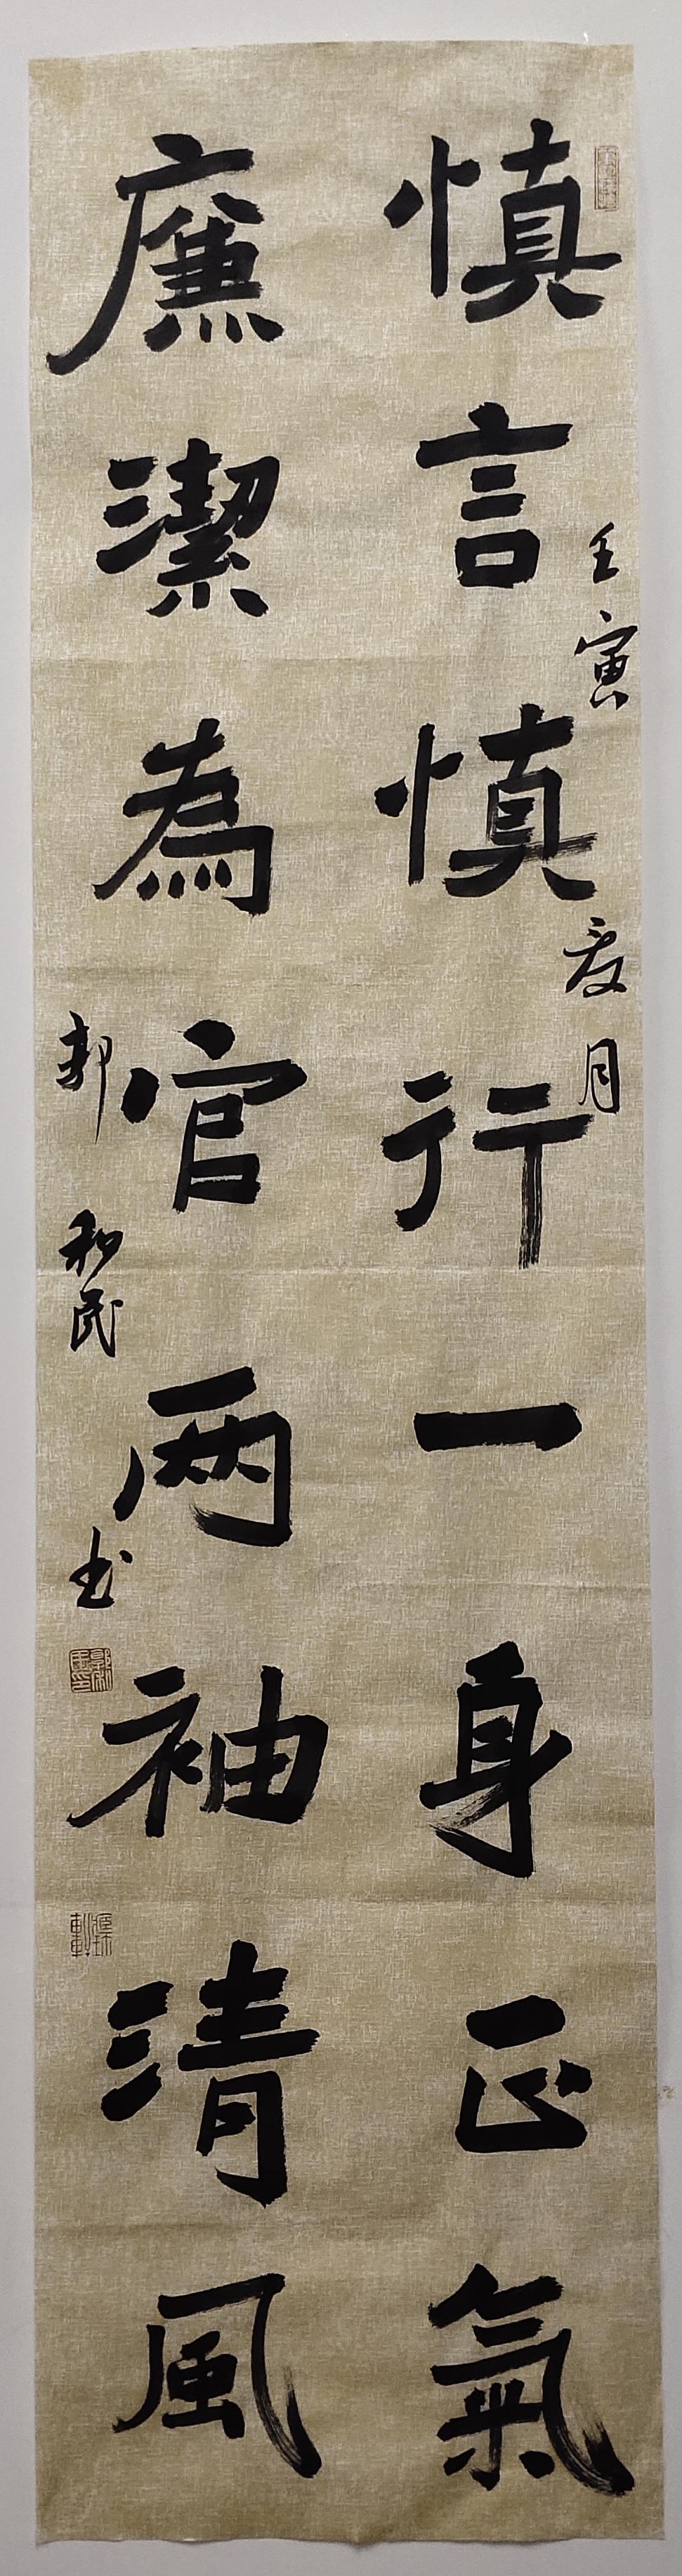 慎言慎行一身正氣
廉潔為官两袖清風
壬寅夏月
郭和民书